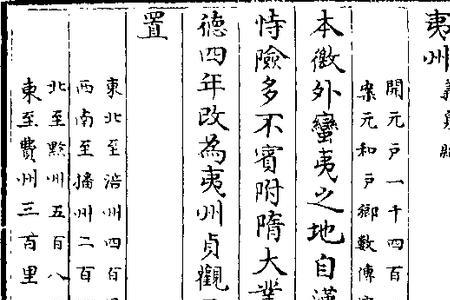 夷州義泉縣
開元戸一千四百
案元和戸鄉數傳
本徼外蠻夷之地自漢
恃險多不賓附隋大業
德四年改為夷州貞觀
置
東北至涪州四百
西南至播州二百
北至黔州五百八
東至費州三百里